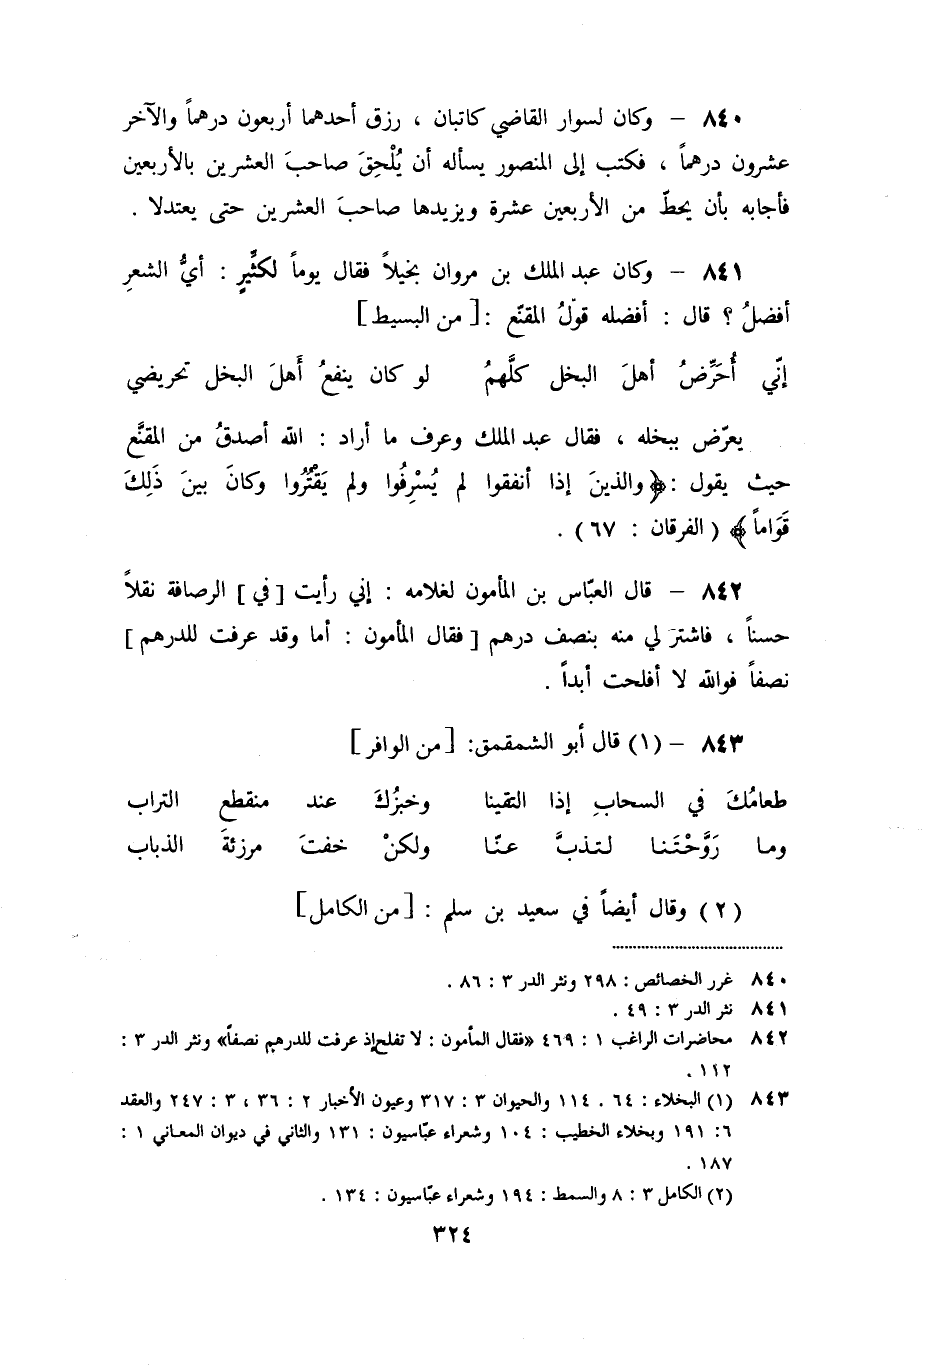 ٨٤٠ – وكان لسوار القاضي كاتبان ، رزق أحدهما أربعون درهماً والآخر
عشرون درهماً ، فكتب إلى المنصور يسأله أن يُلْحِقَ صاحبَ العشرين بالأربعين
فأجابه بأن يحطّ من الأربعين عشرة ويزيدها صاحبَ العشرين حتى يعتدلا .
٨٤١ – وكان عبد الملك بن مروان بخيلاً فقال يوماً لكثيِّرٍ : أيُّ الشعرِ
أفضلُ ؟ قال : أفضله قولُ المقنّع :[ من البسيط]
إنّي أُحَرِّضُ أهلَ البخل كلَّهمُ لو كان ينفعُ أَهلَ البخل تحريضي
يعرّض ببخله ، فقال عبد الملك وعرف ما أراد : الله أصدقُ من المقنَّع
حيث يقول :﴿والذينَ إذا أنفقوا لم يُسْرِفُوا ولم يَقْتُرُوا وكانَ بينَ ذَلِكَ
قَوَاماً﴾ (الفرقان : ٦٧) .
٨٤٢ – قال العبّاس بن المأمون لغلامه : إني رأيت [في] الرصافة نقلاً
حسناً ، فاشترَ لي منه بنصف درهم [فقال المأمون : أما وقد عرفت للدرهم]
نصفاً فوالله لا أفلحت أبداً .
٨٤٣ – (١) قال أبو الشمقمق: [من الوافر]
طعامُكَ في السحابِ إذا التقينا وخبزُكَ عند منقطع التراب
وما رَوَّحْتَنا لتذبَّ عنّا ولكنْ خفتَ مرزئةَ الذباب
(٢) وقال أيضاً في سعيد بن سلم : [من الكامل]
٨٤٠ غرر الخصائص : ٢٩٨ ونثر الدر ٣ : ٨٦ .
٨٤١ نثر الدر ٣ : ٤٩ .
٨٤٢ محاضرات الراغب ١ : ٤٦٩ «فقال المأمون : لا تفلح إذ عرفت للدرهم نصفاً» ونثر الدر ٣ :
١١٢ .
٨٤٣ (١) البخلاء : ٦٤ . ١١٤ والحيوان ٣ : ٣١٧ وعيون الأخبار ٢ : ٣٦ ، ٣ : ٢٤٧ والعقد
٦: ١٩١ وبخلاء الخطيب : ١٠٤ وشعراء عبّاسيون : ١٣١ والثاني في ديوان المعاني ١ :
١٨٧ .
(٢) الكامل ٣ : ٨ والسمط : ١٩٤ وشعراء عبّاسيون : ١٣٤ .
٣٢٤